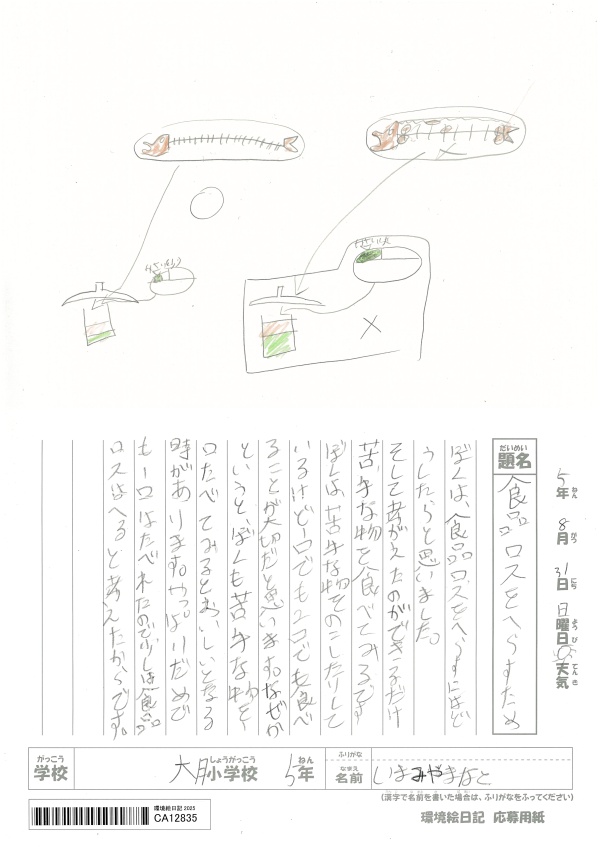 はいりょう
はいりょう
5年 8月 31日 日曜日 天気
ねん がつ にち ようび てんき
だいめい
題名
食品ロスをへらすため
ぼくは、食品ロスをへらすにはど
うしたらと思いました。
そして考がえたのができるだけ
苦手な物を食べてみるです
ぼくは苦手な物をのこしたりして
いるけど一口でも二口でも食べ
ることが大切だと思います。なぜか
というと、ぼくも苦手な物を一
口たべてみるとおいしいとなる
時があります。やっぱりだめで
も一口はたべれたので少しは食品
ロスはへると考えたからです。
がっこう
学校
大月小学校 5年
しょうがっこう ねん
ふりがな
なまえ
名前
いまみやまなと
(漢字で名前を書いた場合は、ふりがなをふってください)
環境絵日記 2025
CA12835
環境絵日記 応募用紙